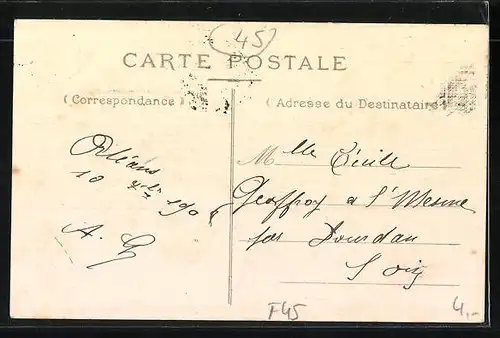 (45)
CARTE POSTALE
(Correspondance)
(Adresse du Destinataire)
Orléans
10 190
A. G
Mlle Cécile
Geoffroy a
par Dourdan
F45
4,-